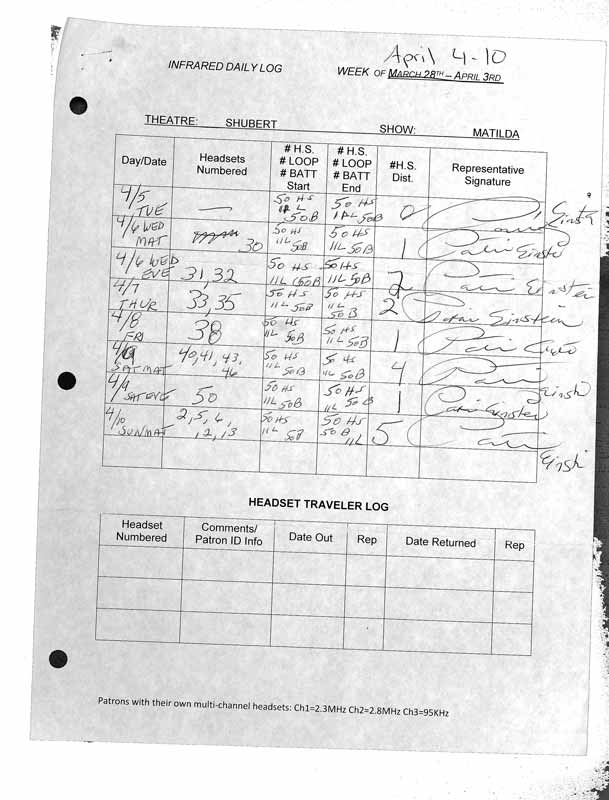 April 4-10
INFRARED DAILY LOG
WEEK OF MARCH 28TH – APRIL 3RD
THEATRE: SHUBERT SHOW: MATILDA
Day/Date Headsets Numbered # H.S. # LOOP # BATT Start # H.S. # LOOP # BATT End #H.S. Dist. Representative Signature
4/5 TUE — 50 HS 11 L 50B 50 HS 11 L 50B 0 Einstein
4/6 WED MAT 30 50 HS 11L 50B 50 HS 11L 50B 1 Einstein
4/6 WED EVE 31, 32 50 HS 11L 50B 50 HS 11L 50B 2 Einstein
4/7 THUR 33, 35 50 HS 11L 50B 50 HS 11L 50B 2 Einstein
4/8 FRI 38 50 HS 11L 50B 50 HS 11L 50B 1
SAT MAT 40, 41, 43, 46 50 HS 11L 50B 50 HS 11L 50B 4
4/9 SAT EVE 50 50 HS 11L 50B 50 HS 11L 50B 1 Einstein
4/10 SUN MAT 2, 5, 50HS 11L 50B 50 HS 50B 11L 5
HEADSET TRAVELER LOG
Headset Numbered Comments/ Patron ID Info Date Out Rep Date Returned Rep
Patrons with their own multi-channel headsets: Ch1=2.3MHz Ch2=2.8MHz Ch3=95KHz